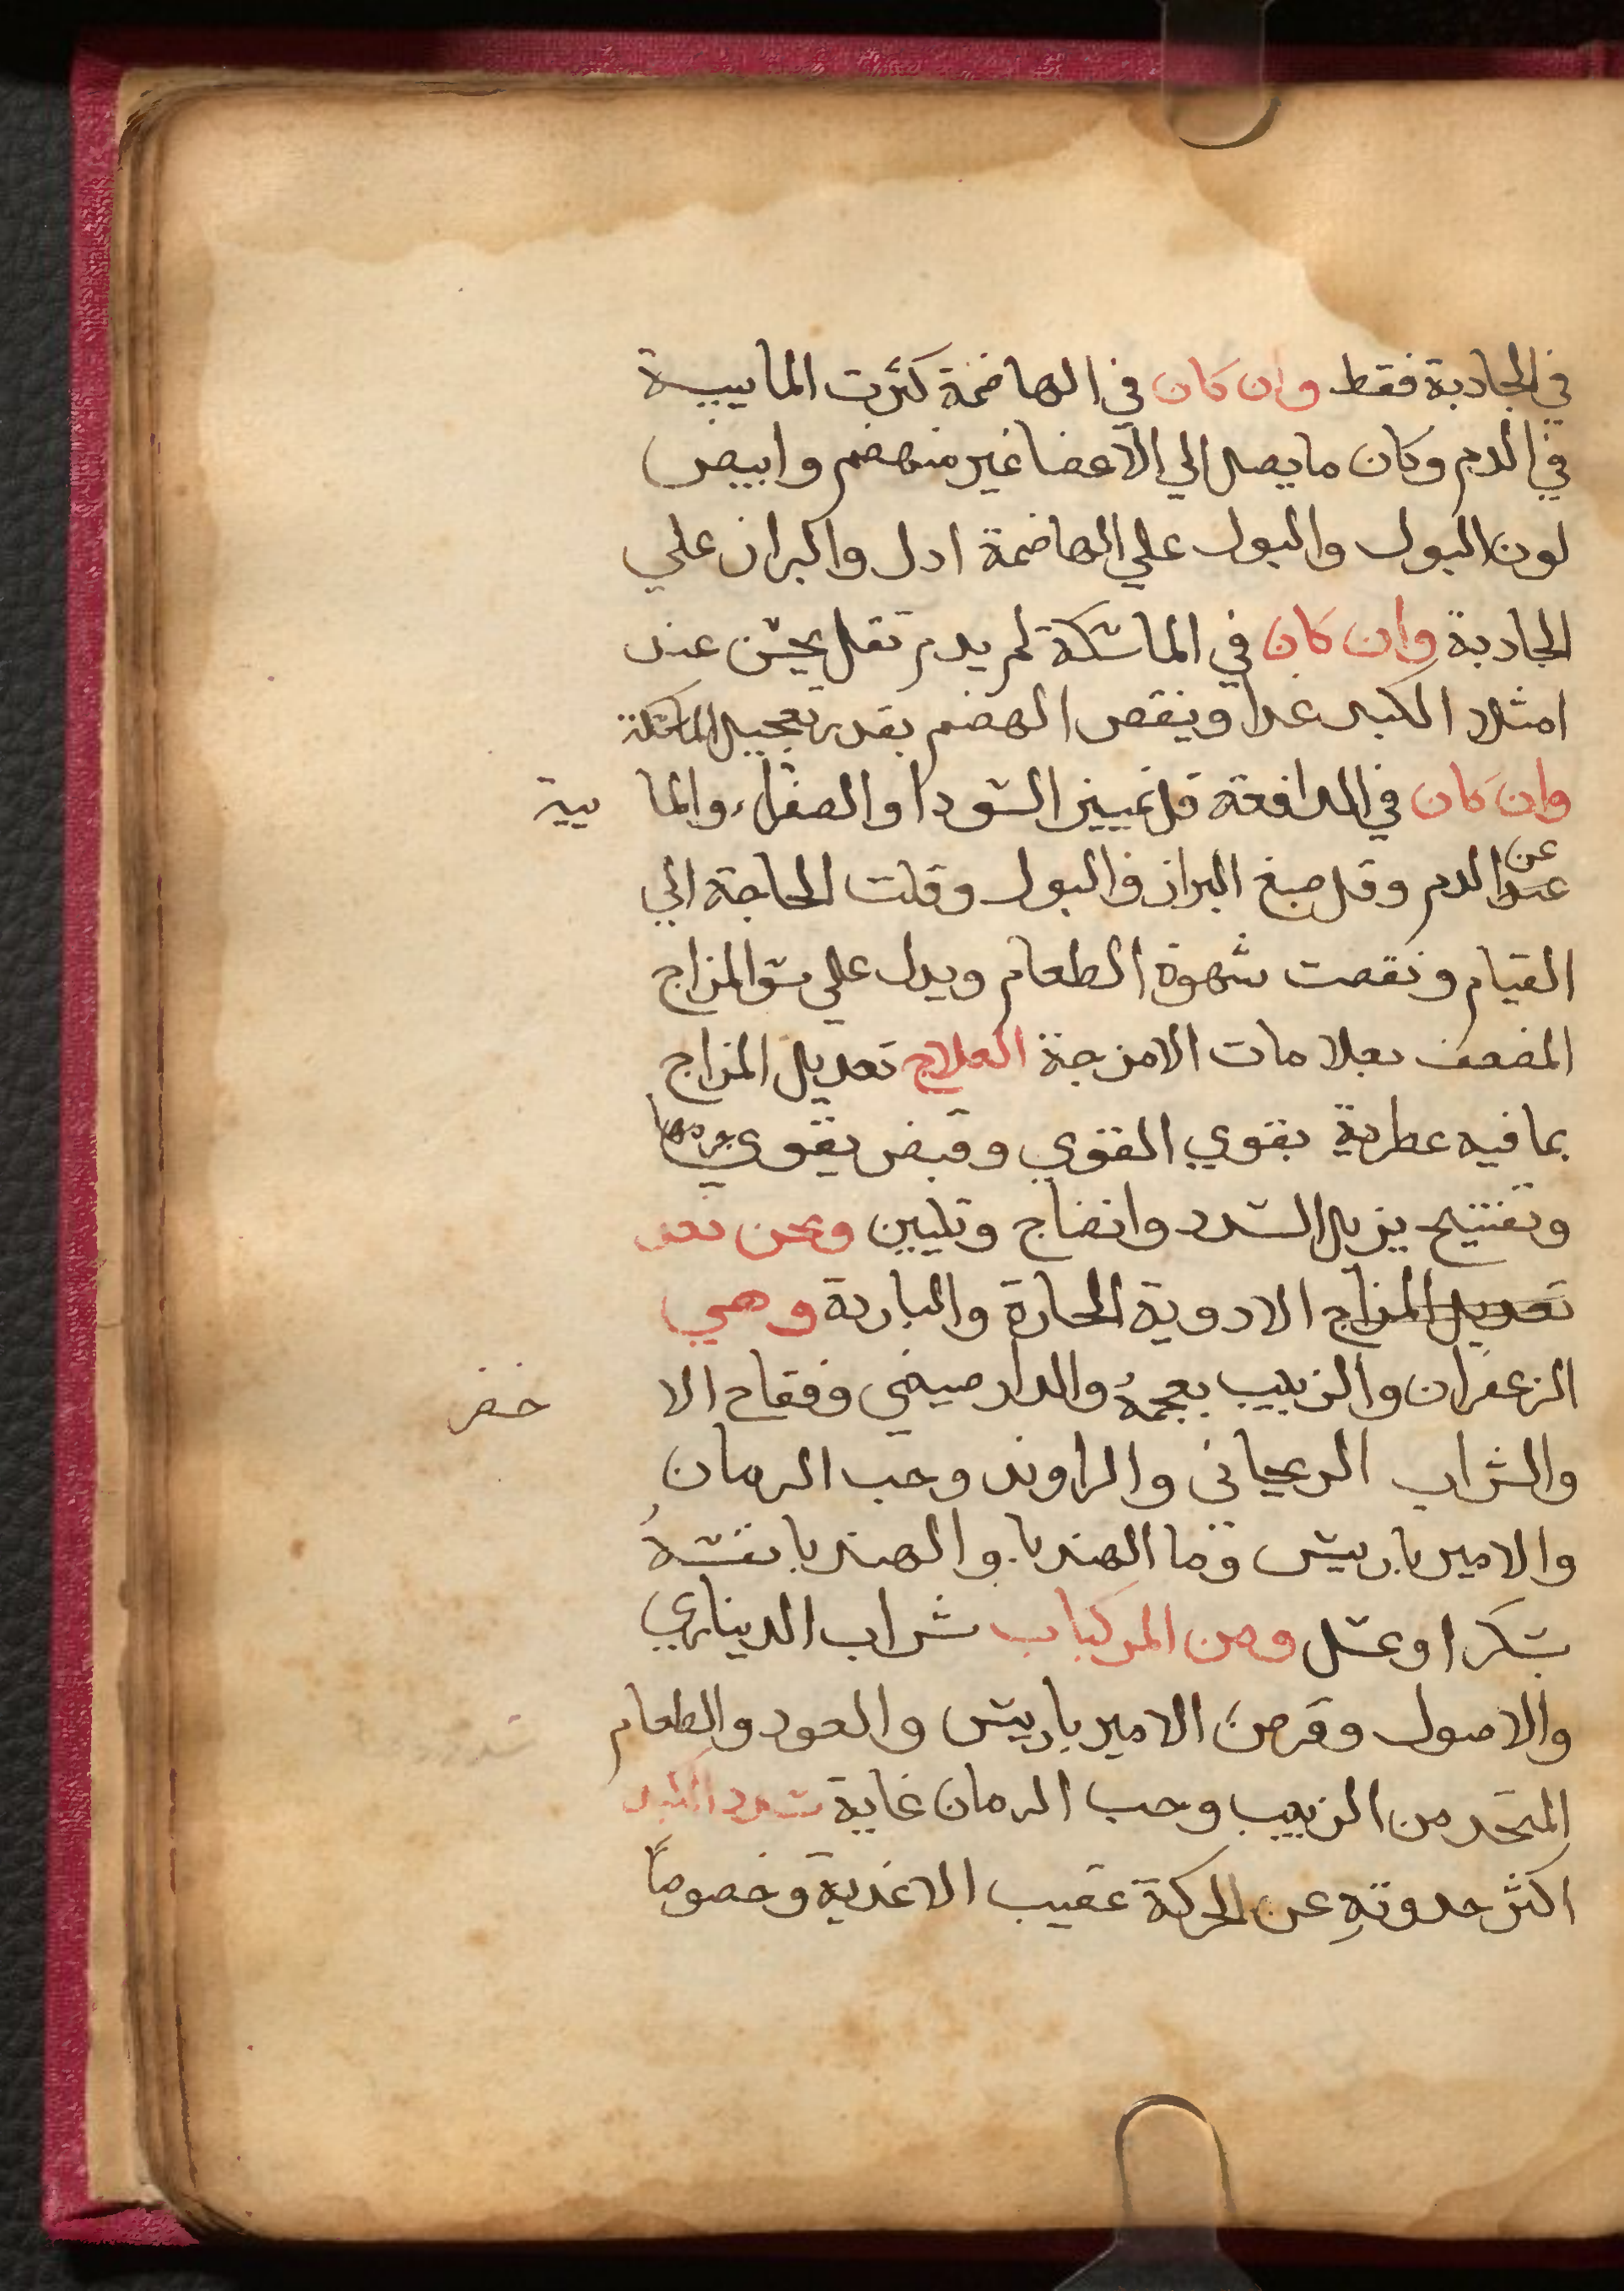 في الجادبة فقط وان كان في الهاضمة كثرت الماييية
في الدم وكان ما يصل الي الاعضا غير منهضم وابيض
لون البول والبول علي الهاضمة ادل والبراز علي
الجادبة وان كان في الماسكة لم يدم تقل يحس عند
امتلا الكبد غدا وينقص الهضم بقدر تعجيل الماسكة
وان كان في الدافعة قل تمييز السودا والصفراء والما ييية
عن
عند الدم وقل صبغ البراز والبول وقلت الحاجة الي
القيام ونقصت شهوة الطعام ويدل علي سو المزاج
المضعف بعلامات الامزجة العلاج تعديل المزاج
بما فيه عطرية يقوي القوي وقبض يقوي جرمها
وتفتيح يزيل السدد وانضاج وتليين ونحن نعد
تعديل المزاج الادوية الحارة والباردة وهي
الزعفران والزبيب بعجمهُ والدارصيني وفقاح الا ذخر
والشراب الريحاني والراوند وحب الرمان
والاميرباريس وما الهندبا والهندبا نفسهُ
بسكر او عسل ومن المركبات شراب الديناري
والاصول وقرص الاميرباريس والعود والطعام
المتخد من الزبيب وحب الرمان غاية سدد الكبد
اكثر حدوتهِ عن الحركة عقيب الاغدية وخصوصاً